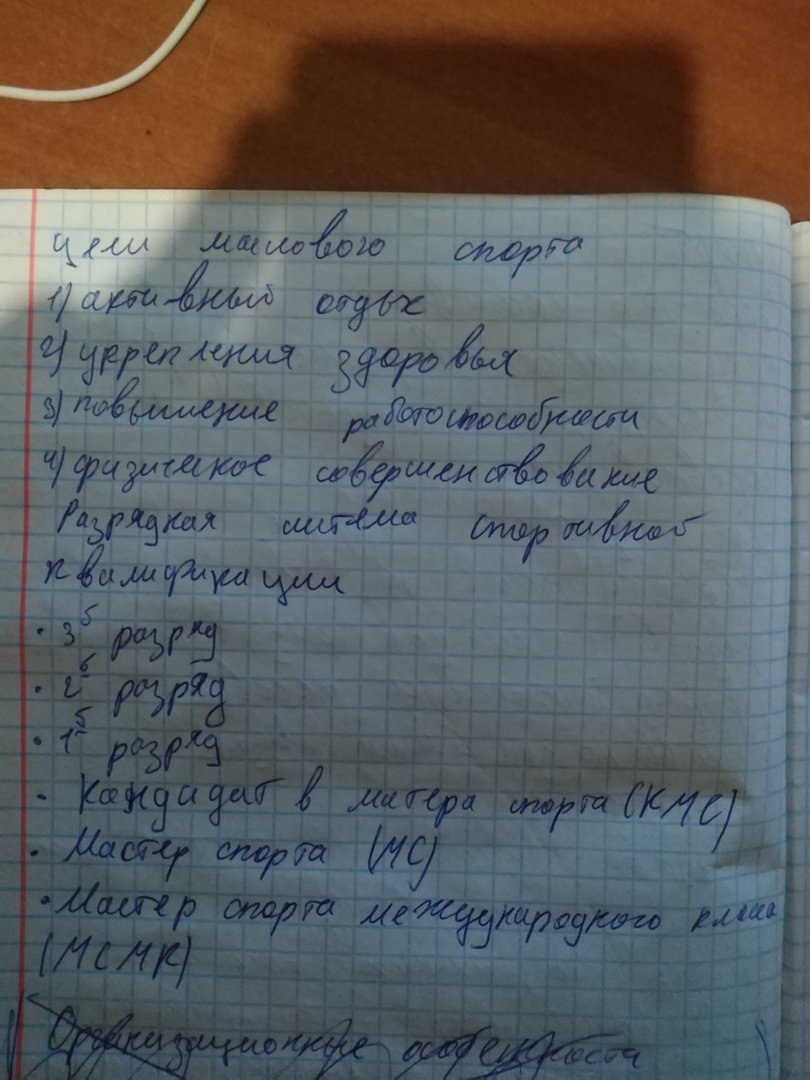 цели масового спорта
1) активный отдых
2) укрепления здоровья
3) повышение работоспособности
4) физическое совершенствование
Разрядная система спортивной
квалификации
• 3й разряд
• 2й разряд
• 1й разряд
• Кандидат в матера спорта (КМС)
• Мастер спорта (МС)
• Мастер спорта международного класа
(МСМК)
Организационные особенности